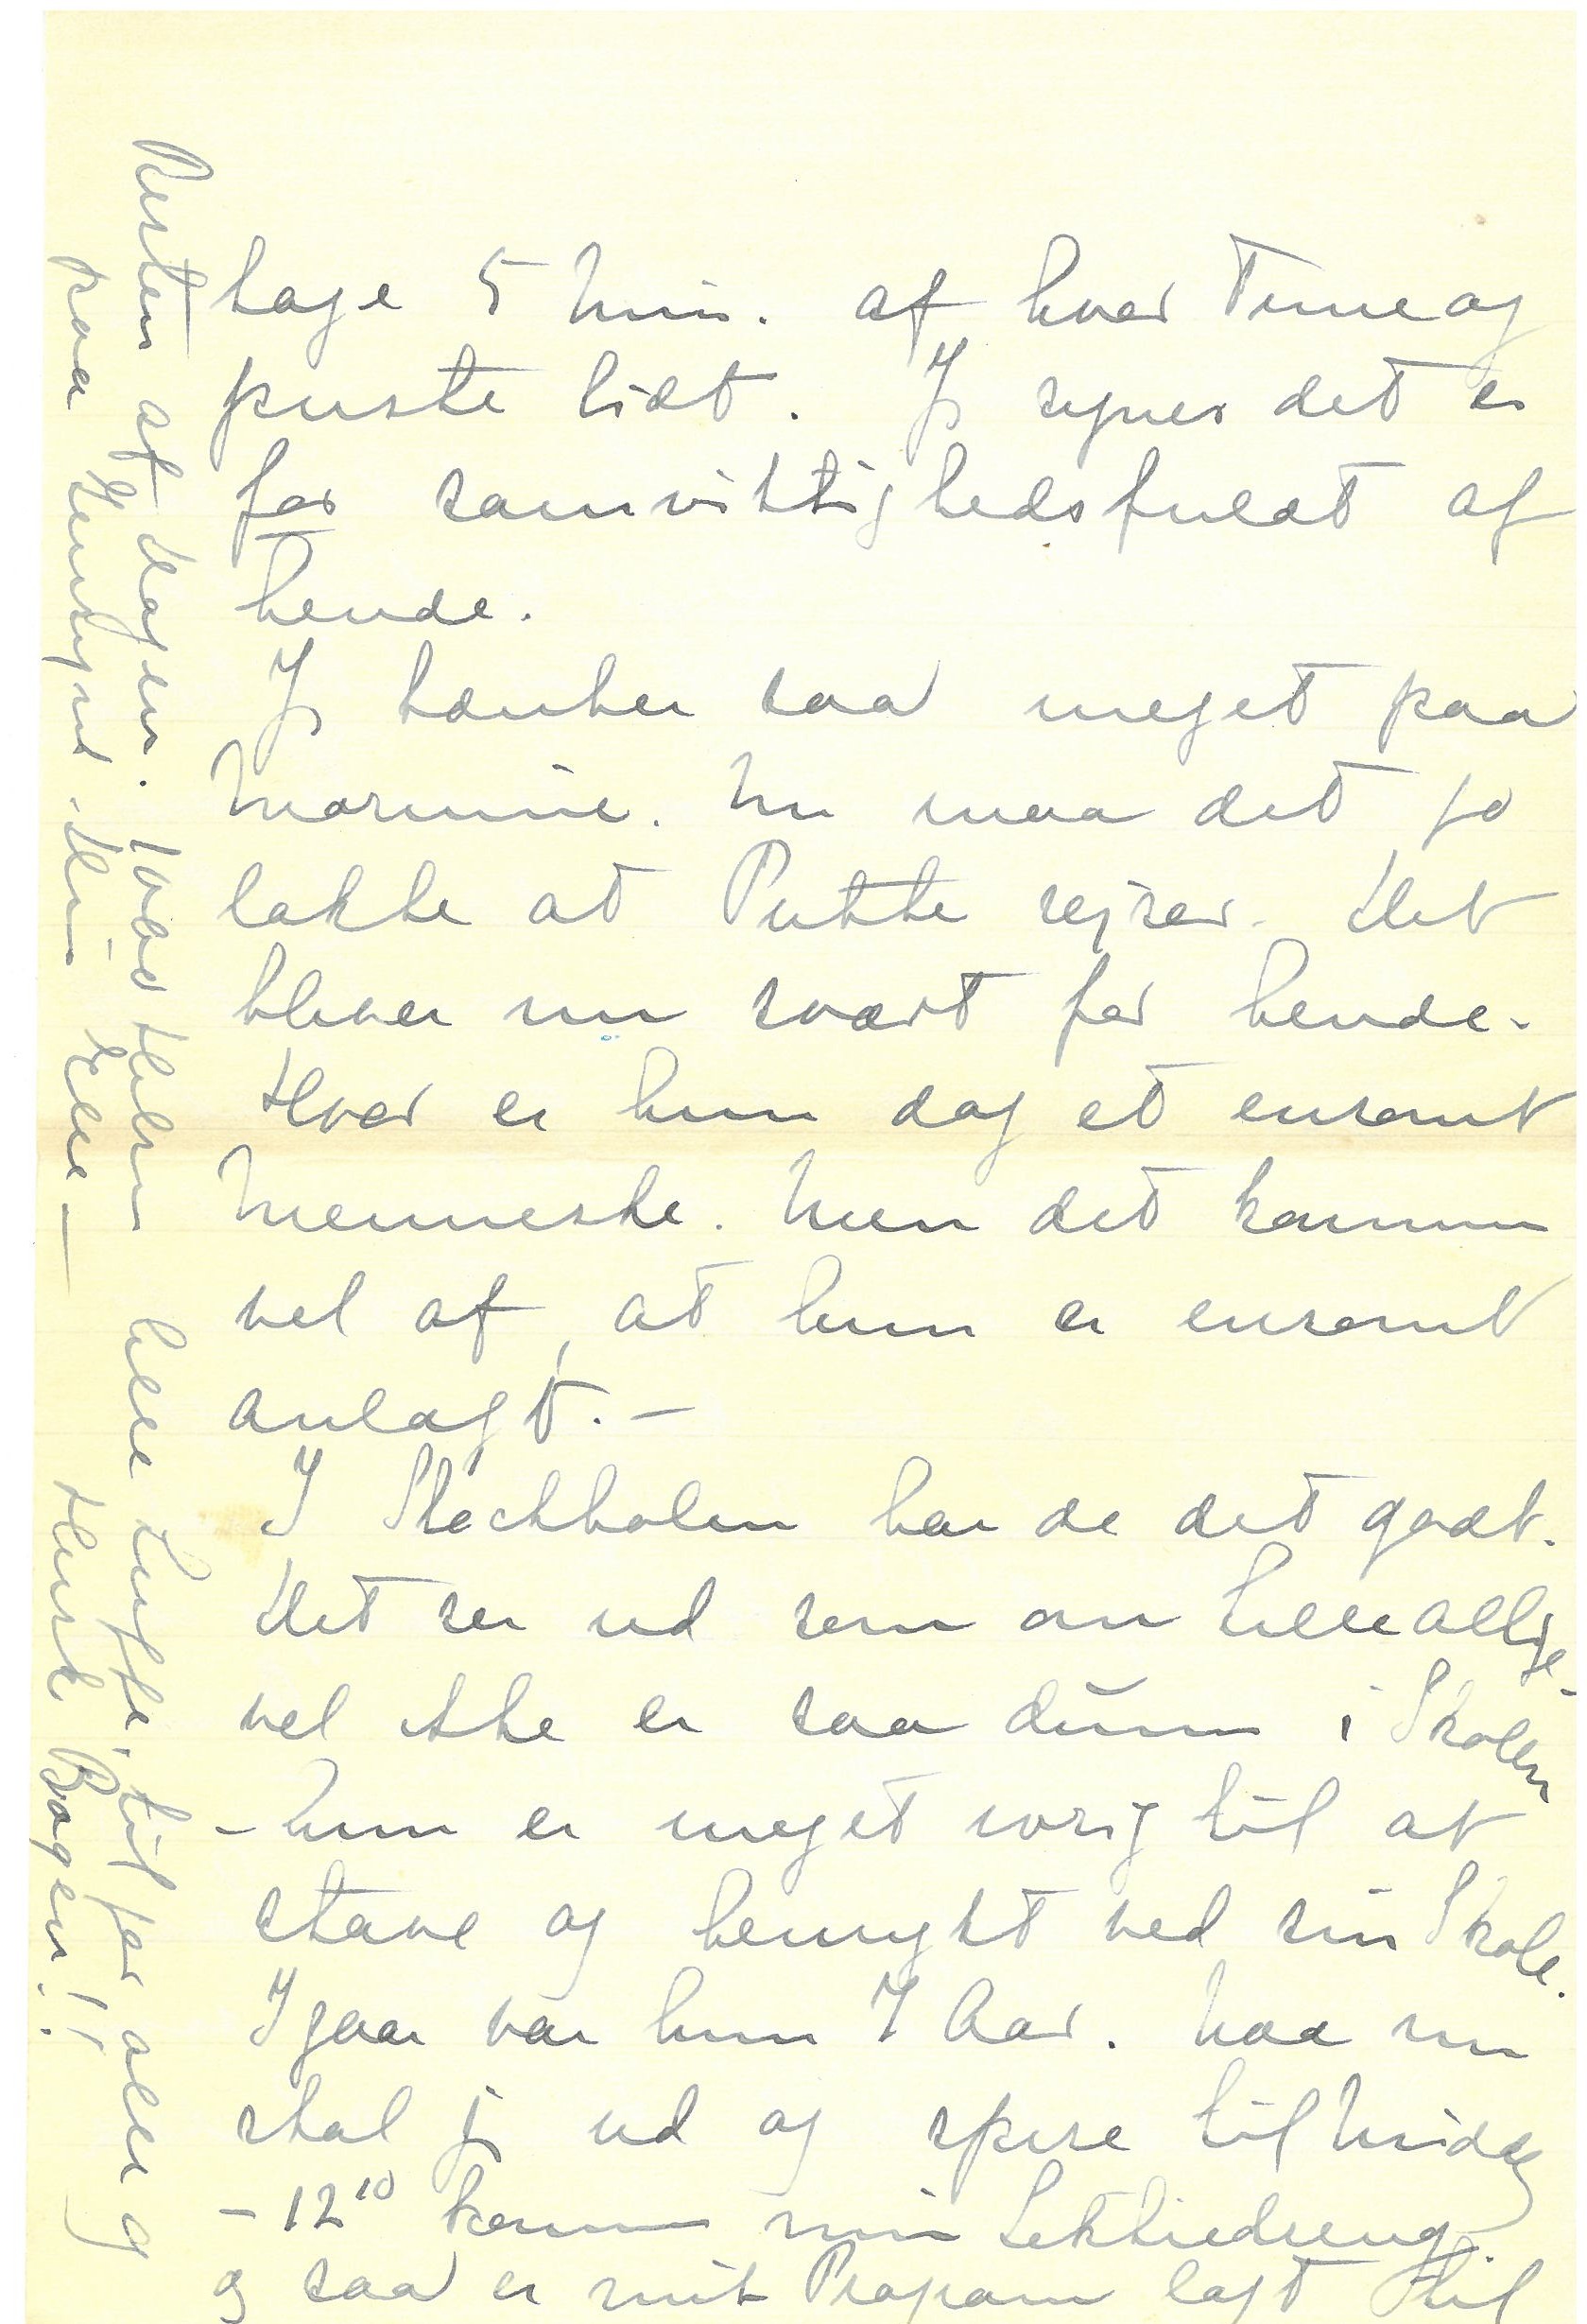 tage 5 Min. af hver Time og
puste lidt. Jg synes det er
for samvittighedsfuldt af
hende.
Jg tænker saa meget paa
Mornine. Nu maa det jo
lakke at Putte rejser. Det
bliver nu svært for hende.
Hvor er hun dog et ensomt
Menneske. Men det kommer
vel af, at hun er ensomt
anlagt. –
I Stockholm har de det godt.
Det ser ud som om Lille allige-
vel ikke er saa dum i Skolen
– hun er meget ivrig til at
stave og henrykt ved sin Skole.
Igaar var hun 7 Aar. Naa nu
skal jg ud og spise til Middag
– 12 10 kommer min Lektiedreng
og saa er mit Program lagt til
Resten af Dagen. Hils
lille Luffe, til for alle og
paa Gensyn. Din Elle –
Husk Bogen!!